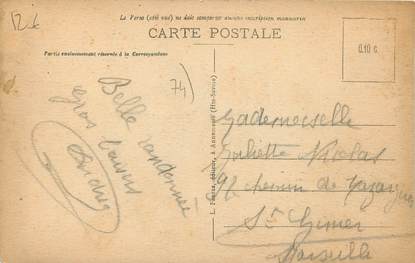 12€
Le Verso (côté vue) ne doit comporter aucune inscription manuscrite
CARTE POSTALE
Partie exclusivement réservée à la Correspondance
0.10 c.
74)
Belle randonnée
gros baisers
L. éditeur, à Annemasse (Hte-Savoie)
Mademoiselle
Juliette Nicolas
chemin de Mazargues
Ste
Marseille